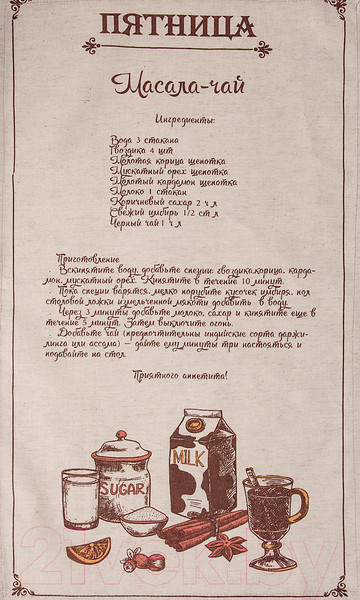 ПЯТНИЦА
Масала-чай
Ингредиенты:
Вода 3 стакана
Гвоздика 4 шт
Молотая корица щепотка
Мускатный орех щепотка
Молотый кардамон щепотка
Молоко 1 стакан
Коричневый сахар 2 ч л
Свежий имбирь 1/2 ст л
Черный чай 1 ч л
Приготовление
. Вскипятите воду, добавьте специи: гвоздика,корица, карда-
мон, мускатный орех. Кипятите в течение 10 минут.
. Пока специи варятся, мелко порубите кусочек имбиря, пол
столовой ложки измельченной мякоти добавить в воду.
. Через 3 минуты добавьте молоко, сахар и кипятите еще в
течение 5 минут. Затем выключите огонь.
. Добавьте чай (предпочтительны индийские сорта дарджи-
линга или ассама) – дайте ему минуты три настояться и
подавайте на стол.
Приятного аппетита!
MILK
SUGAR
21vek.by